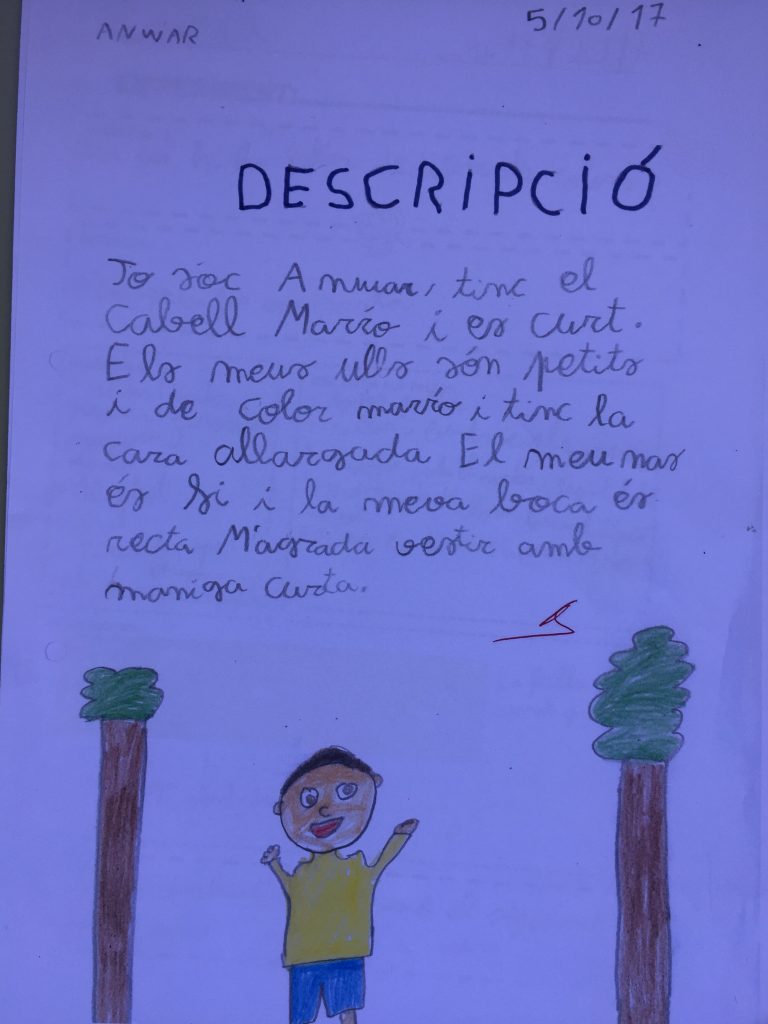 ANWAR
5/10/17
DESCRIPCIÓ
Jo sóc Anwar, tinc el
Cabell Marró i es curt.
Els meus ulls són petits
i de color marró i tinc la
cara allargada El meu nas
és fi i la meva boca és
recta M'agrada vestir amb
maniga curta.